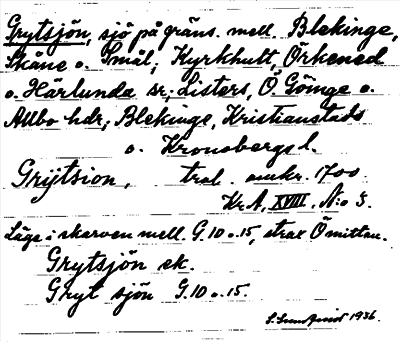 Grytsjön, sjö på gräns. mell. Blekinge,
Skåne o. Smål; Kyrkhult, Örkened
o. Härlunda sr; Listers, Ö. Göinge o.
Allbo hdr; Blekinge, Kristianstads
o. Kronobergs l.
Grÿtsion, trol. omkr. 1700.
Kr. A, XVIII, N:o 3.
Läge i skarven mell. G. 10 o. 15, strax Ö mitten.
Grytsjön ek.
Gryt sjön G. 10 o. 15.
1936.